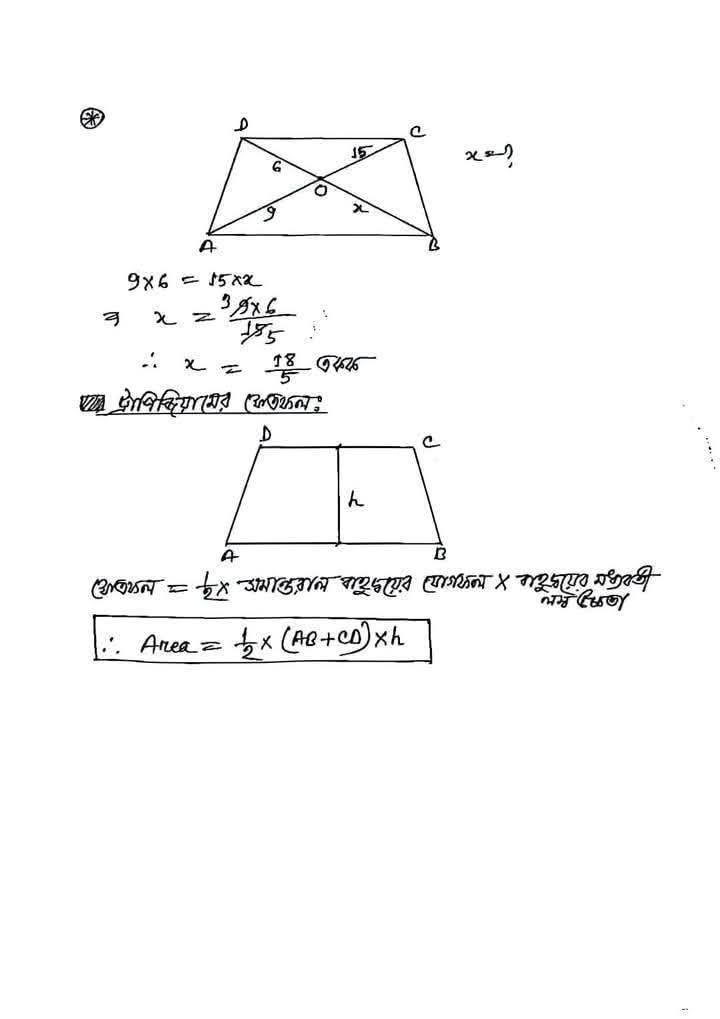 D C
15 x=?
6
O
9 x
A B
9×6 = 15×x
⇒ x = 3 9×6 / 15 5
∴ x = 18/5 একক
ট্রাপিজিয়ামের ক্ষেত্রফল:
D C
h
A B
ক্ষেত্রফল = 1/2 × সমান্তরাল বাহুদ্বয়ের যোগফল × বাহুদ্বয়ের মধ্যবর্তী
লম্ব উচ্চতা
∴ Area = 1/2 × (AB+CD) × h